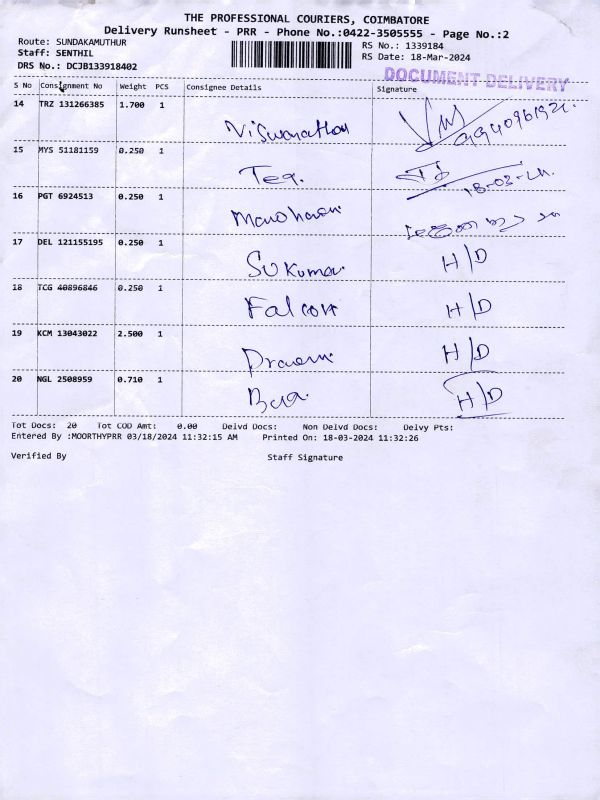 THE PROFESSIONAL COURIERS, COIMBATORE
Delivery Runsheet - PRR - Phone No.:0422-3505555 - Page No.:2
Route: SUNDAKAMUTHUR
Staff: SENTHIL
DRS No.: DCJB133918402
RS No.: 1339184
RS Date: 18-Mar-2024
DOCUMENT DELIVERY
S No Consignment No Weight PCS Consignee Details Signature
14 TRZ 131266385 1.700 1 Viswanathan
15 MYS 51181159 0.250 1 18-03-24
16 PGT 6924513 0.250 1 Manoharan
17 DEL 121155195 0.250 1 SUKumar H/D
18 TCG 40896846 0.250 1 Falcon H/D
19 KCM 13043022 2.500 1 Praveen H/D
20 NGL 2508959 0.710 1 H/D
Tot Docs: 20 Tot COD Amt: 0.00 Delvd Docs: Non Delvd Docs: Delvy Pts:
Entered By :MOORTHYPRR 03/18/2024 11:32:15 AM Printed On: 18-03-2024 11:32:26
Verified By Staff Signature